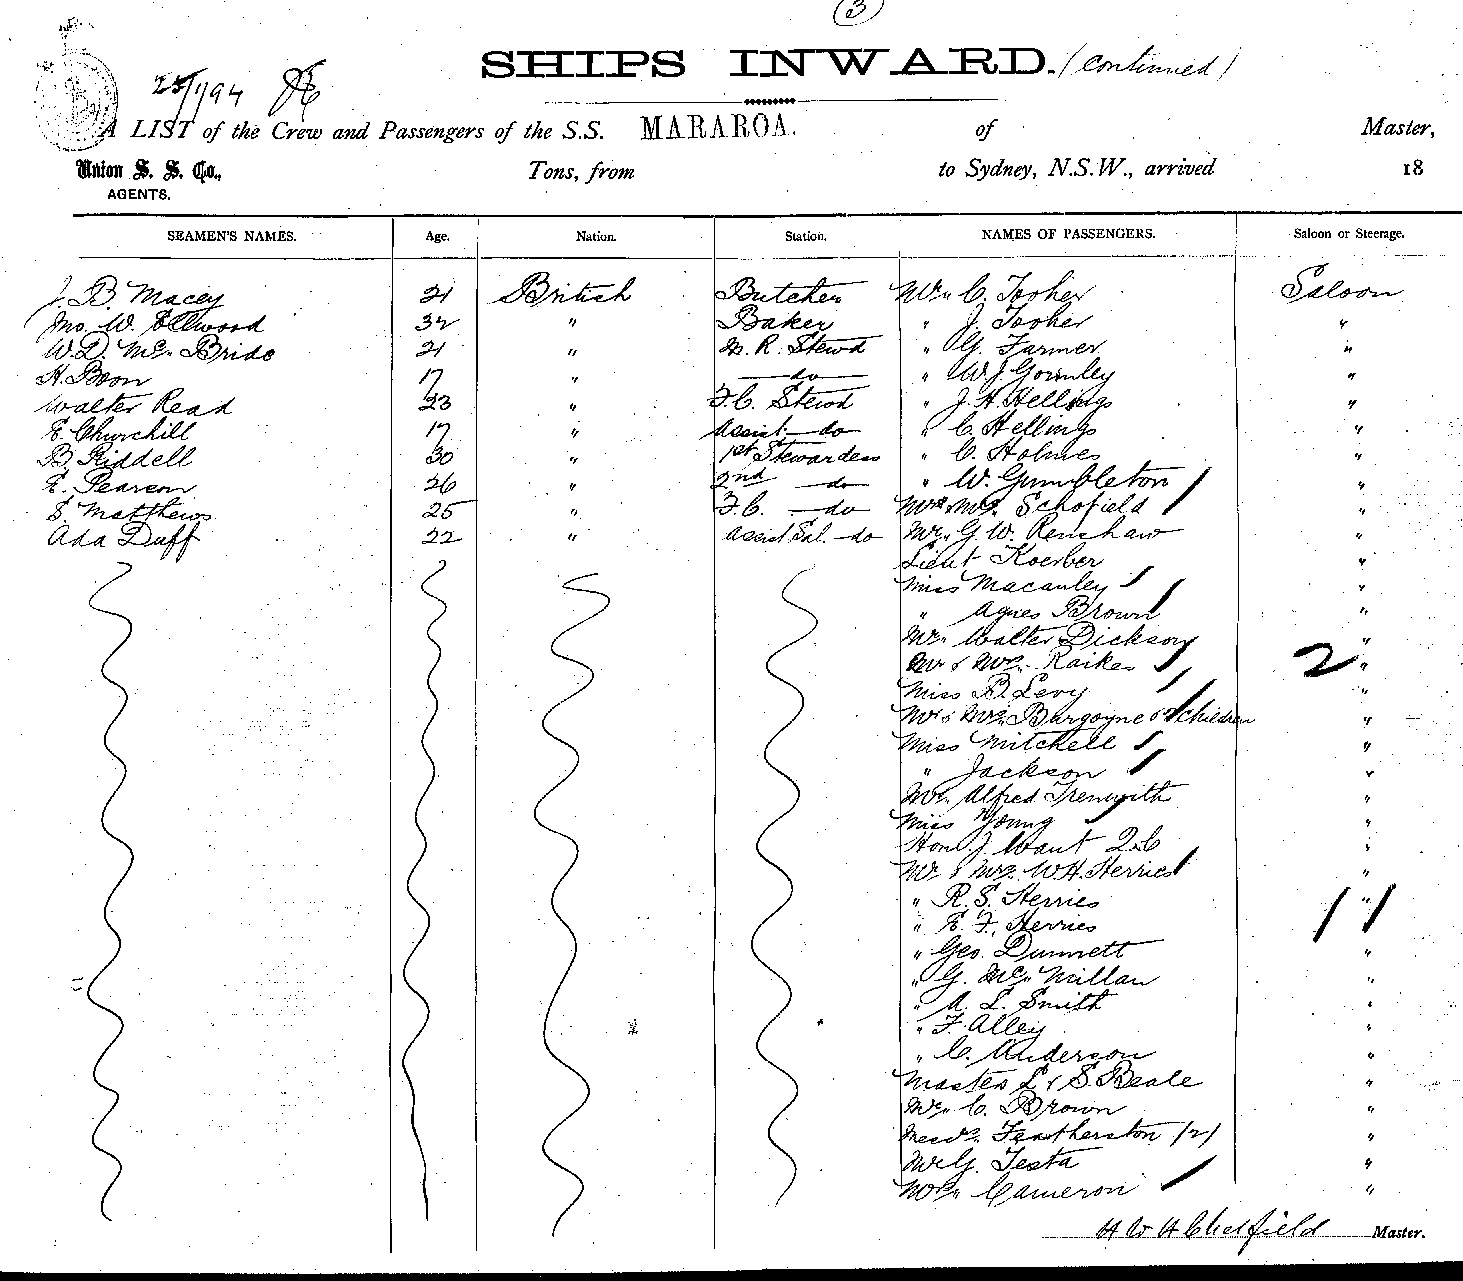 3
SHIPS INWARD. (continued)
A LIST of the Crew and Passengers of the S.S. MARAROA. of Master,
Union S. S. Co., Tons, from to Sydney, N.S.W., arrived 18
AGENTS.
SEAMEN'S NAMES. Age. Nation. Station. NAMES OF PASSENGERS. Saloon or Steerage.
J. B. Macey 21 British Butcher Mr. C. Tooher Saloon
Jno. W. Ellwood 32 " Baker " J. Tooher "
W. D. McBride 21 " M. R. Stewd " G. Farmer "
H. Boon 17 " —do— " W. J. Gormley "
Walter Read 23 " F.C. Stewd " J. H. Hellings "
E. Churchill 17 " Assist —do " C. Hellings "
B. Riddell 30 " 1st Stewardess " C. Holmes "
E. Pearson 26 " 2nd —do " W. Gumbleton "
S. Matthews 25 " F.C. —do Mr & Mrs. Schofield "
Ada Duff 22 " Assist Sal. —do Mr. G. W. Renshaw "
Lieut Koerber "
Miss Macauley "
" Agnes Brown "
Mr. Walter Dickson "
Mr & Mrs. Raikes 2 "
Miss B. Levy "
Mr & Mrs. Burgoyne & children "
Miss Mitchell "
" Jackson "
Mr. Alfred Trenwith "
Miss Young "
Hon. J. Want Q.C "
Mr & Mrs. W. H. Herries "
" R. S. Herries "
" E. F. Herries
" Geo. Dunnett "
" G. McMillan "
" A. L. Smith "
" F. Alley "
" C. Anderson "
Masters L & S. Beale "
Mr. C. Brown "
Messrs. Featherston (2) "
Mr G. Testa "
Mrs. Cameron "
Master.